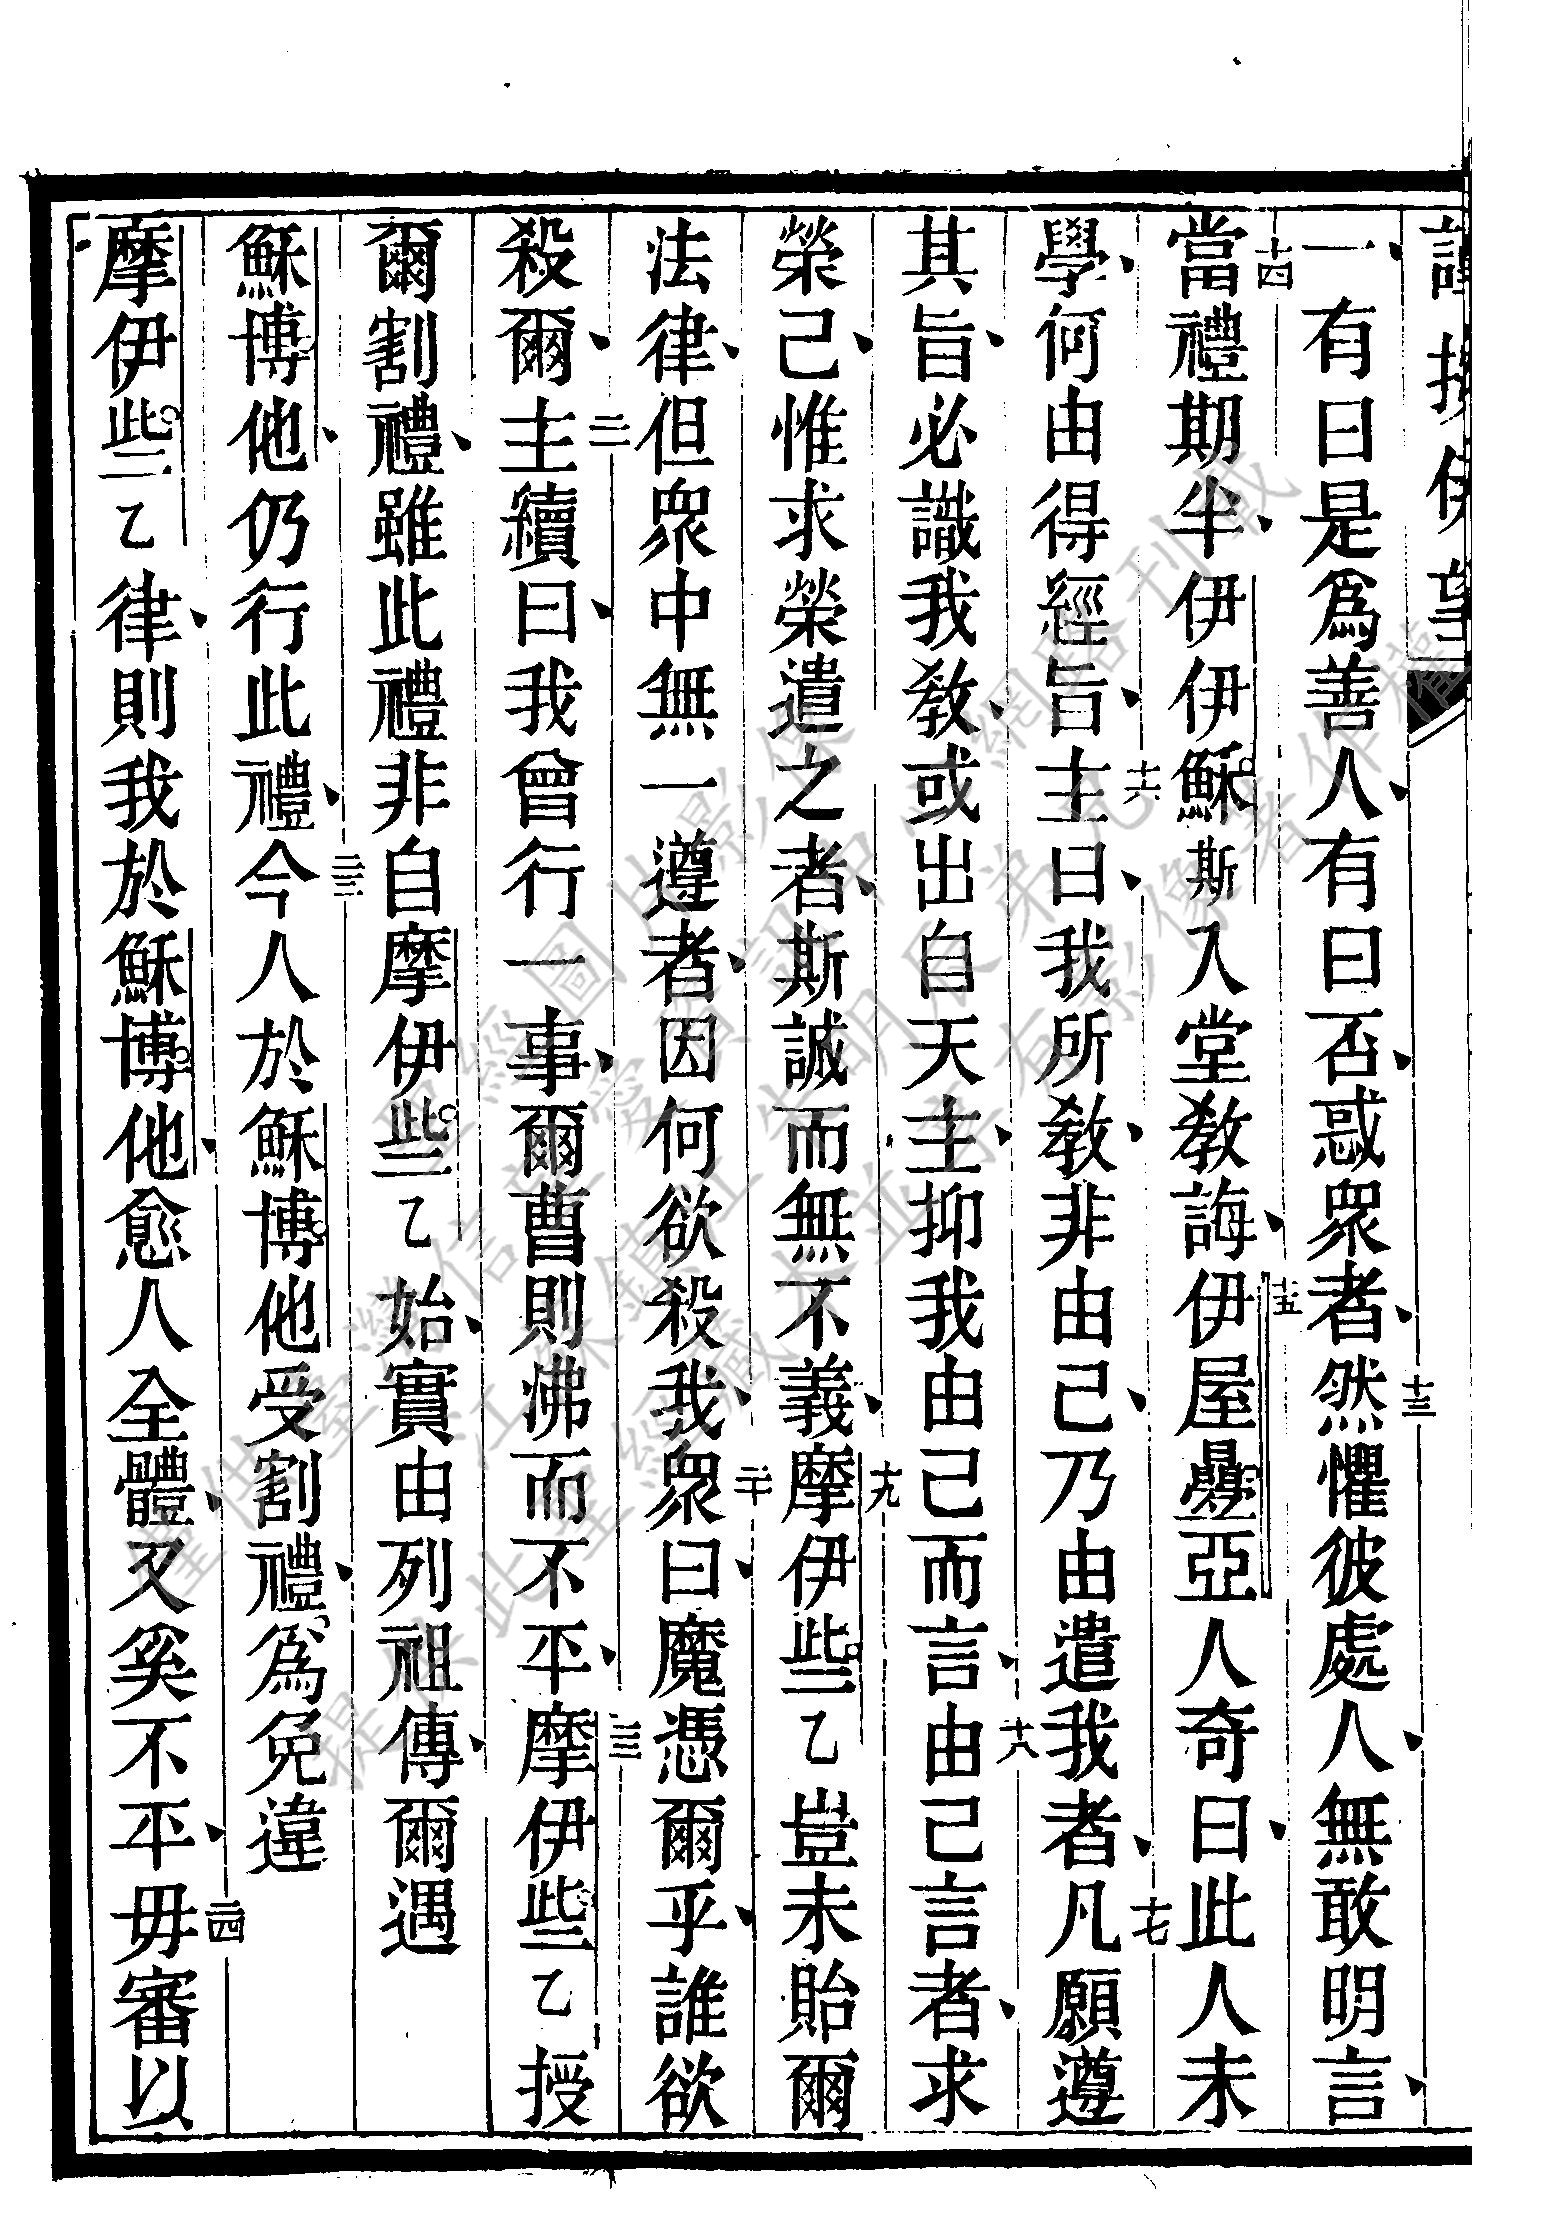 一有曰是爲善人有曰否惑衆者十三然懼彼處人無敢明言
十四當禮期半伊伊穌斯入堂敎誨十五伊屋疊亞人奇曰此人未
學何由得經旨十六主曰我所敎非由己乃由遣我者十七凡願遵
其旨必識我敎或出自天主抑我由己而言十八由己言者求
榮己惟求榮遣之者斯誠而無不義十九摩伊些乙豈未貽爾
法律但衆中無一遵者因何欲殺我二十衆曰魔憑爾乎誰欲
殺爾二一主續曰我曾行一事爾曹則怫而不平二二摩伊些乙授
爾割禮雖此禮非自摩伊些乙始實由列祖傳爾遇
穌博他仍行此禮二三今人於穌博他受割禮爲免違
摩伊些乙律則我於穌博他愈人全體又奚不平二四毋審以